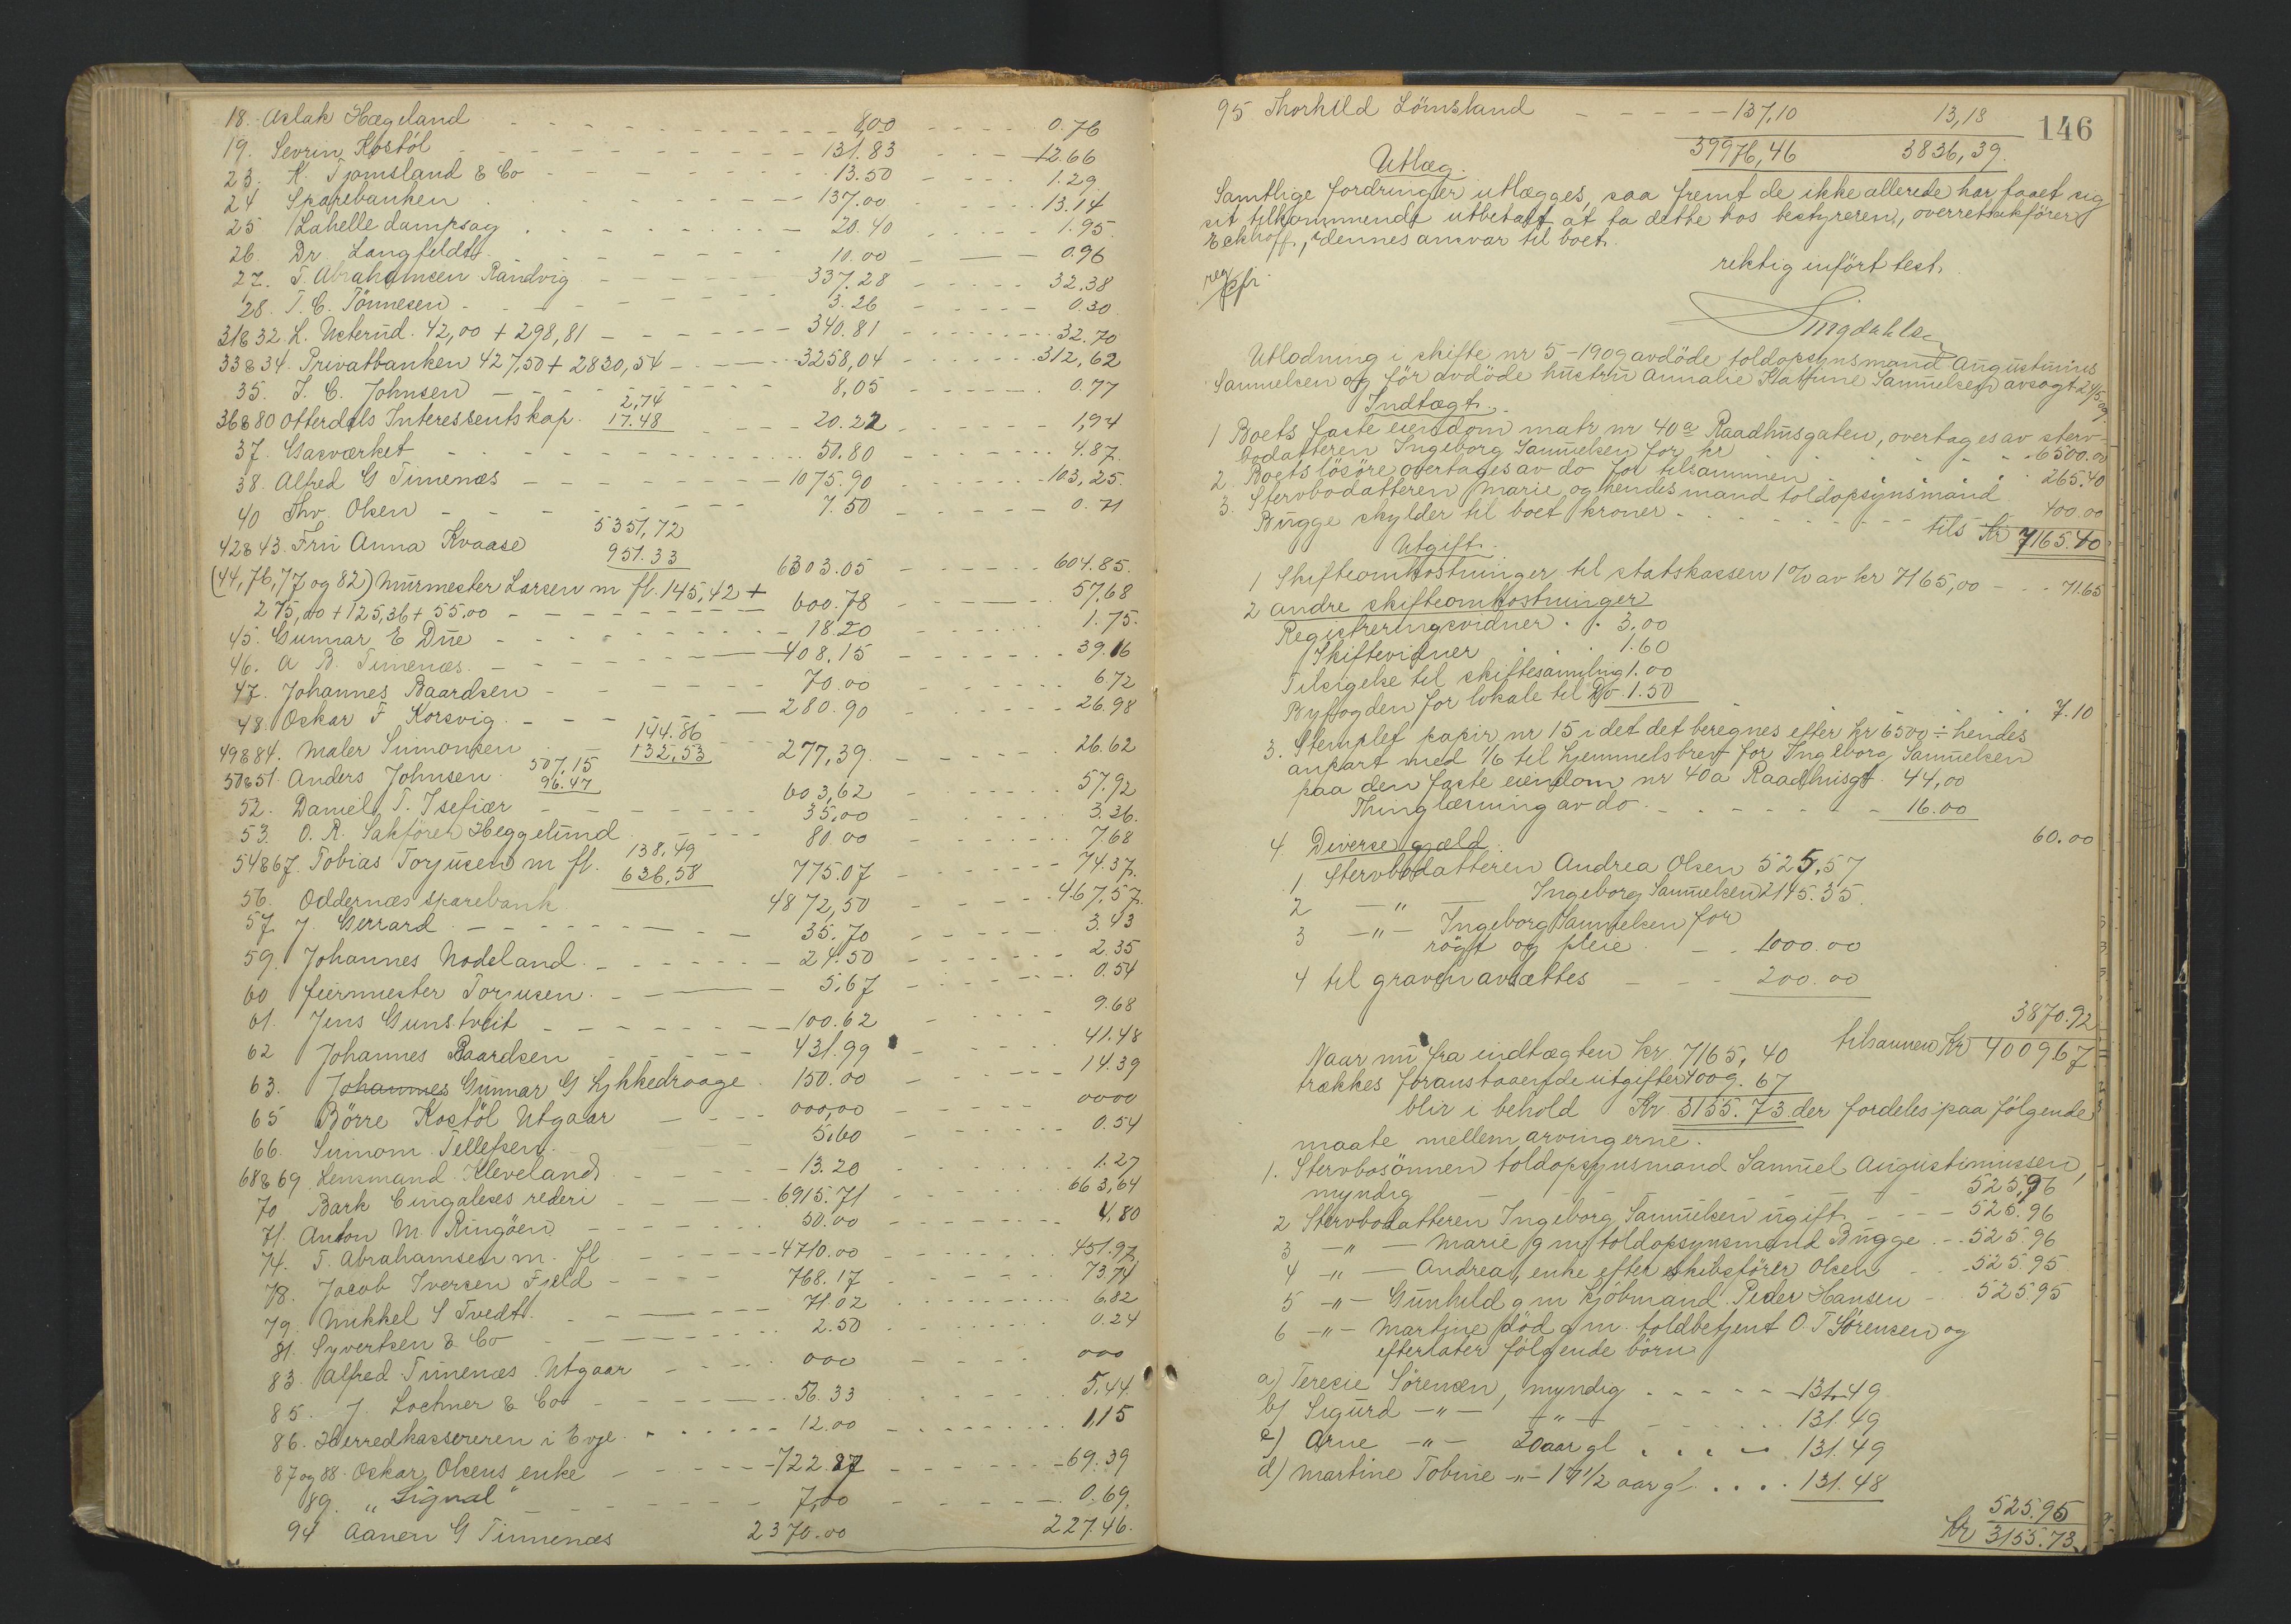 18. Aslak Hægeland 8,00 0.76
19. Sevrin Kostöl 131.83 12.66
23. K. Tjomsland & Co 13.50 1.29
24 Sparebanken 137.00 13.14
25 Lahelle dampsag 20.40 1.95
26. Dr. Langfeldt 10.00 0.96
27. T. Abrahamsen Randvig 337.28 32.38
28. T. C. Tönnesen 3.26 0.30
31&32. L. Usterud. 42,00 + 298,81 340.81 32.70
33&34. Privatbanken 427,50 + 2830,54 3258,04 312,62
35. J. C. Johnsen 8,05 0.77
36&80 Otterdals Interessentskap. 2,74 17.48 20.22 1,94
37. Gasværket 50.80 4.87
38. Alfred G Timenæs 1075.90 103,25
40 Thv. Olsen 7.50 0.71
42&43. Fru Anna Kvaase 5351,72 951.33 6303.05 604.85
(44, 76, 77 og 82) Murmester Larsen m fl. 145,42 +
275,00 + 125,36 + 55.00 600.78 57,68
45. Gunnar E Due 18.20 1.75
46. A B. Timenæs 408,15 39.16
47. Johannes Baardsen 70.00 6.72
48. Oskar F Korsvig 280.90 26.98
49&84. Maler Simonsen 144.86 132,53 277,39. 26.62
50&51. Anders Johnsen 507,15 96.47 603,62 57.92
52. Daniel T. Isefiær 35,00 3.36
53. O. R. Sakförer Heggelund 80.00 7.68
54&67. Tobias Torjusen m fl. 138,49 636,58 775.07 74.37
56. Oddernæs sparebank 4872,50 467,57
57 J. Gerrard 35.70 3.43
59. Johannes Nodeland 24.50 2.35
60 feiermester Torjusen 5,67 0.54
61. Jens Gunstveit 100.62 9.68
62 Johannes Baardsen 431.99 41.48
63. Johannes Gunnar G Lykkedraage 150.00 14.39
65 Börre Kostöl Utgaar 000,00 0000
66. Simom Tellefsen 5.60 0.54
68&69 Lensmand Kleveland 13.20 1.27
70 Bark Cingaleses rederi 6915.71 663,64
71. Anton M. Ringöen 50.00 4,80
74. T. Abrahamsen m. fl 4710.00 451.97
78. Jacob Iversen Fjeld 768.17 73.74
79. Mikkel S Tvedt 71.02 6.82
81. Syvertsen & Co 2.50 0.24
83. Alfred Timenæs Utgaar 000 000
85. J. Lochner & Co 56.33 5,44
86. Herredkassereren i Evje 12.00 1,15
87 og 88. Oskar Olsens enke 722.87 69.39
89. "Signal" 7,00 0.69
94 Aanen G Timenæs 2370.00 227.46.
95 Thorkild Lömsland 137,10 13,18
146
39976,46 3836,39.
Utlæg.
Samtlige fordringer utlægges, saa fremt de ikke allerede har faaet sig
sit tilkommende utbetalt at ta dette hos bestyreren, overretssakförer
Eckhoff, dennes ansvar til boet.
rektig inført test.
Utlodning i skifte nr 5-1909 avdöde toldopsynsmand Augustinus
Samuelsen og för avdöde hustru Annalie Kathrine Samuelsen avsagt 24/5-09.
Indtægt.
1 Boets faste eiendom matr nr 40a Raadhusgaten, overtages av sterv-
bodatteren Ingeborg Samuelsen for kr 6500.00
2 Boets lösöre overtages av do for tilsammen 265.40
3. Stervbodatteren Marie og hendes mand toldopsynsmand
Bugge skylder til boet kroner 400.00
tils Kr 7165.40
Utgift.
1 Skifteomkostninger til statskassen 1% av kr 7165,00 71.65
2 andre skifteomkostninger
Registreringsvidner 3.00
Skiftevidner 1.60
Tilsigelse til skiftesamling 1.00
Byfogden for lokale til do 1.50
7.10
3. Stemplet papir nr 15 i det det beregnes efter kr 6500 ÷ hendes
anpart med 1/6 til hjemmelsbrev for Ingeborg Samuelsen
paa den faste eiendom nr 40a Raadhusgt 44,00
Thinglæsning av do 16.00
60.00
4 Diverse gjæld.
1 Stervbodatteren Andrea Olsen 525,57
2 -"- Ingeborg Samuelsen 2145.35
3 -"- Ingeborg Samuelsen for
rögt og pleie 1000.00
4 til graven avsættes 200.00
3870.92
tilsammen Kr 4009 67
Naar nu fra indtægten kr. 7165,40
trækkes foranstaaende utgifter 4009.67
blir i behold Kr. 3155.73 der fordeles paa følgende
maate mellem arvingerne.
1. Stervbosönnen toldopsynsmand Samuel Augustinussen,
myndig 525,96
2 Stervbodatteren Ingeborg Samuelsen ugift 525.96
3 -"- Marie g m toldopsynsmand Bugge 525.96
4 -"- Andrea, enke efter skibsförer Olsen 525.95
5 -"- Gunhild g m kjöbmand Peder Hansen 525.95
6 -"- Martine död g m. toldbetjent O. T Sörensen og
efterlater følgende börn
a) Teresie Sörensen, myndig 131.49
b) Sigurd -"- -"- 131.49
c) Arne -"- 20 aar gl 131.49
d) Martine Tobine -"- 17 1/2 aar gl. 131.48
525.95
Kr 3155.73